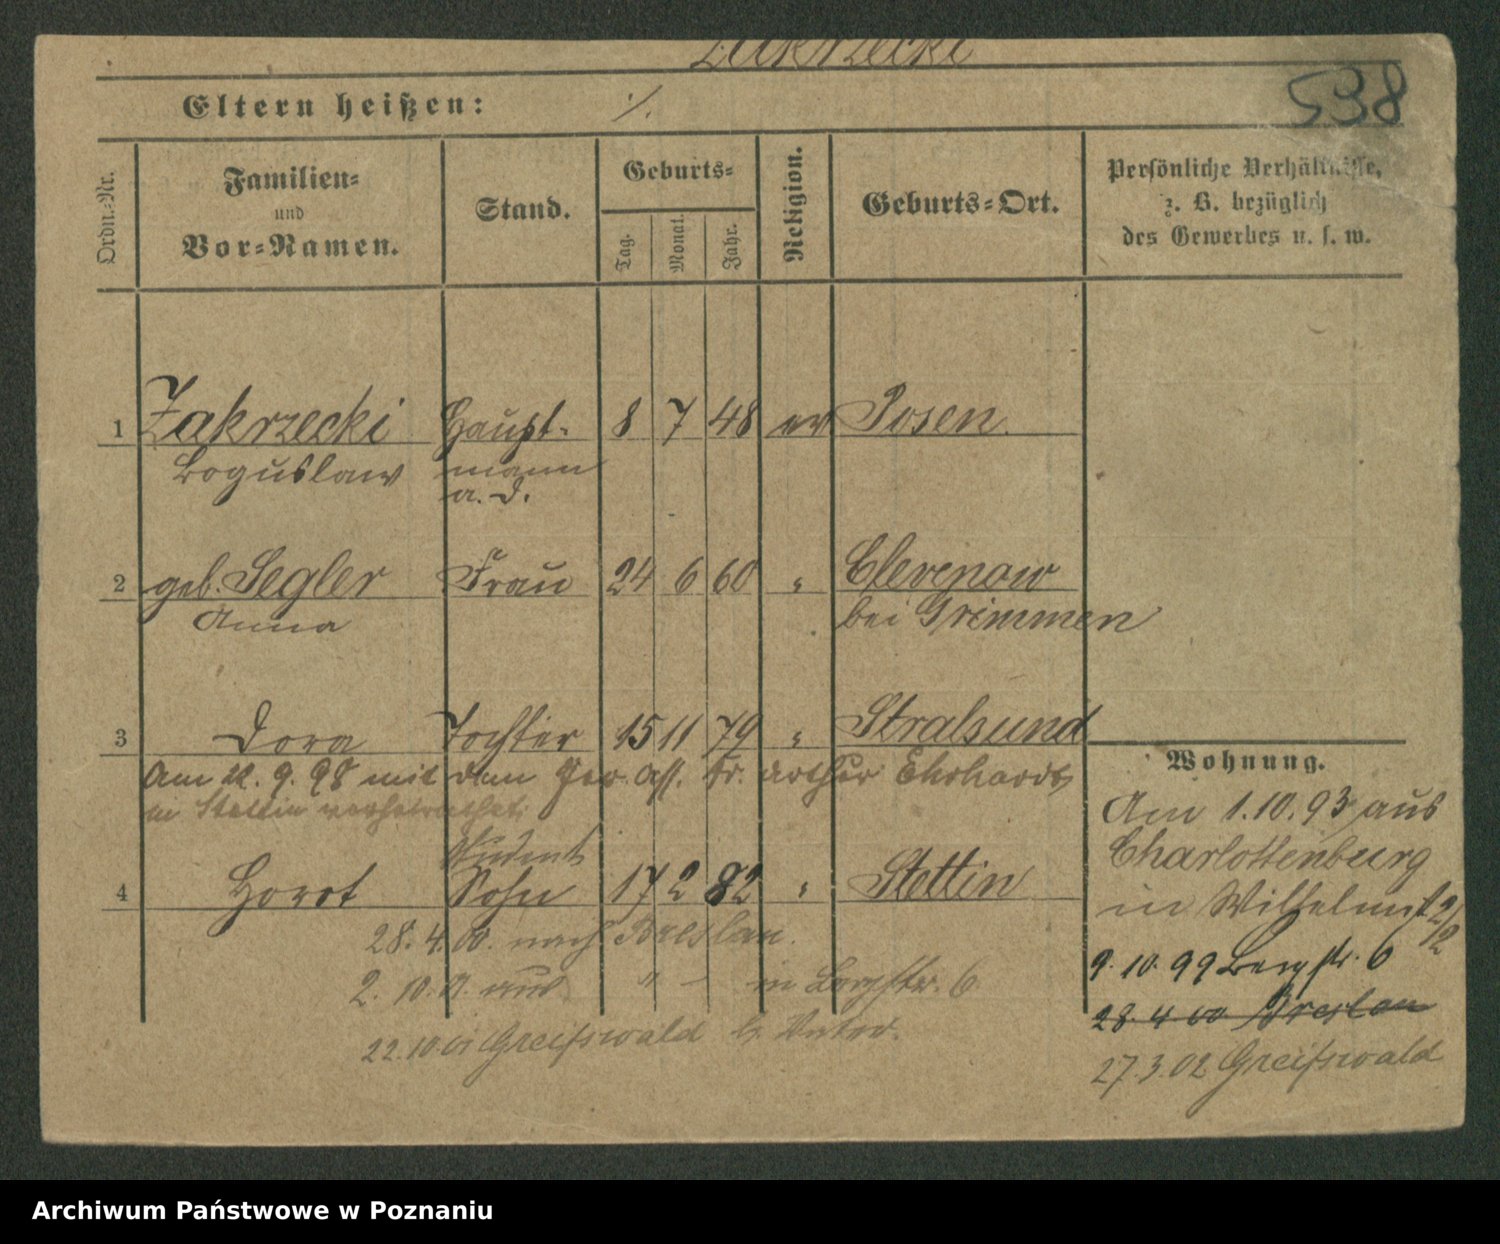 Zakrzecki
538
Eltern heißen: ./.
Ordn.-Nr.
Familien-
und
Vor-Namen.
Stand.
Geburts-
Tag. Monat. Jahr.
Religion.
Geburts-Ort.
Persönliche Verhältnisse,
z. B. bezüglich
des Gewerbes u. s. w.
1 Zakrzecki Haupt- 8 7 48 ev Posen.
Boguslaw mann
a. D.
2 geb. Segler Frau 24 6 60 " Clevenow
Anna bei Grimmen
3 Dora Tochter 15 11 79 " Stralsund
Am 22. 9. 98 mit dem Ger. Ass. Dr. Arthur Ehrhardt
in Stettin verheirathet.
Student
4 Horst Sohn 17 2 82 " Stettin
28. 4. 00. nach Breslau.
2. 10. 01. aus " – in Bergstr. 6
22. 10. 01 Greifswald
Wohnung.
Am 1. 10. 93 aus
Charlottenburg
in Wilhelmst 2/2
9. 10. 99 Bergstr. 6
28 4 00 Breslau
27. 3. 02 Greifswald
Archiwum Państwowe w Poznaniu